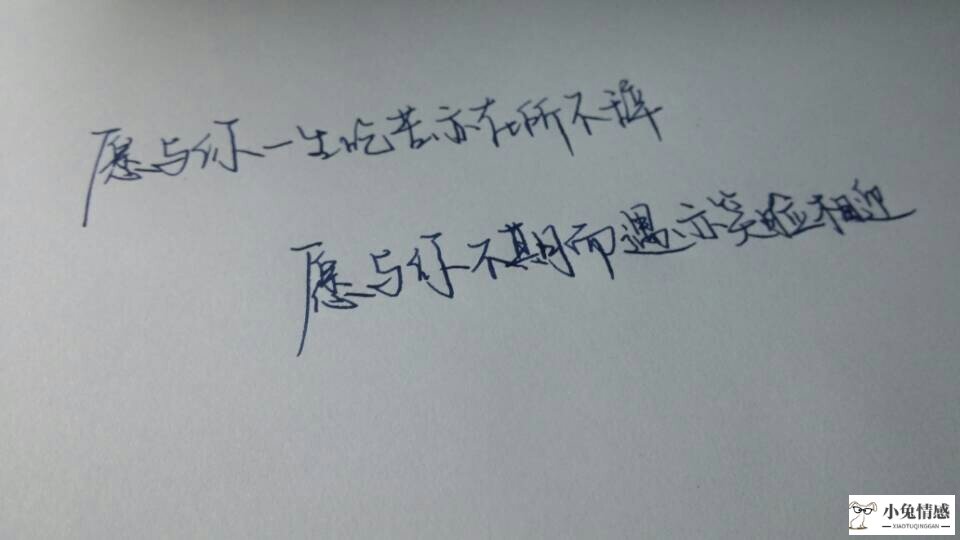 愿与你一生吃苦亦在所不辞
愿与你不期而遇亦笑脸相迎
小兔情感
XIAOTUQINGGAN